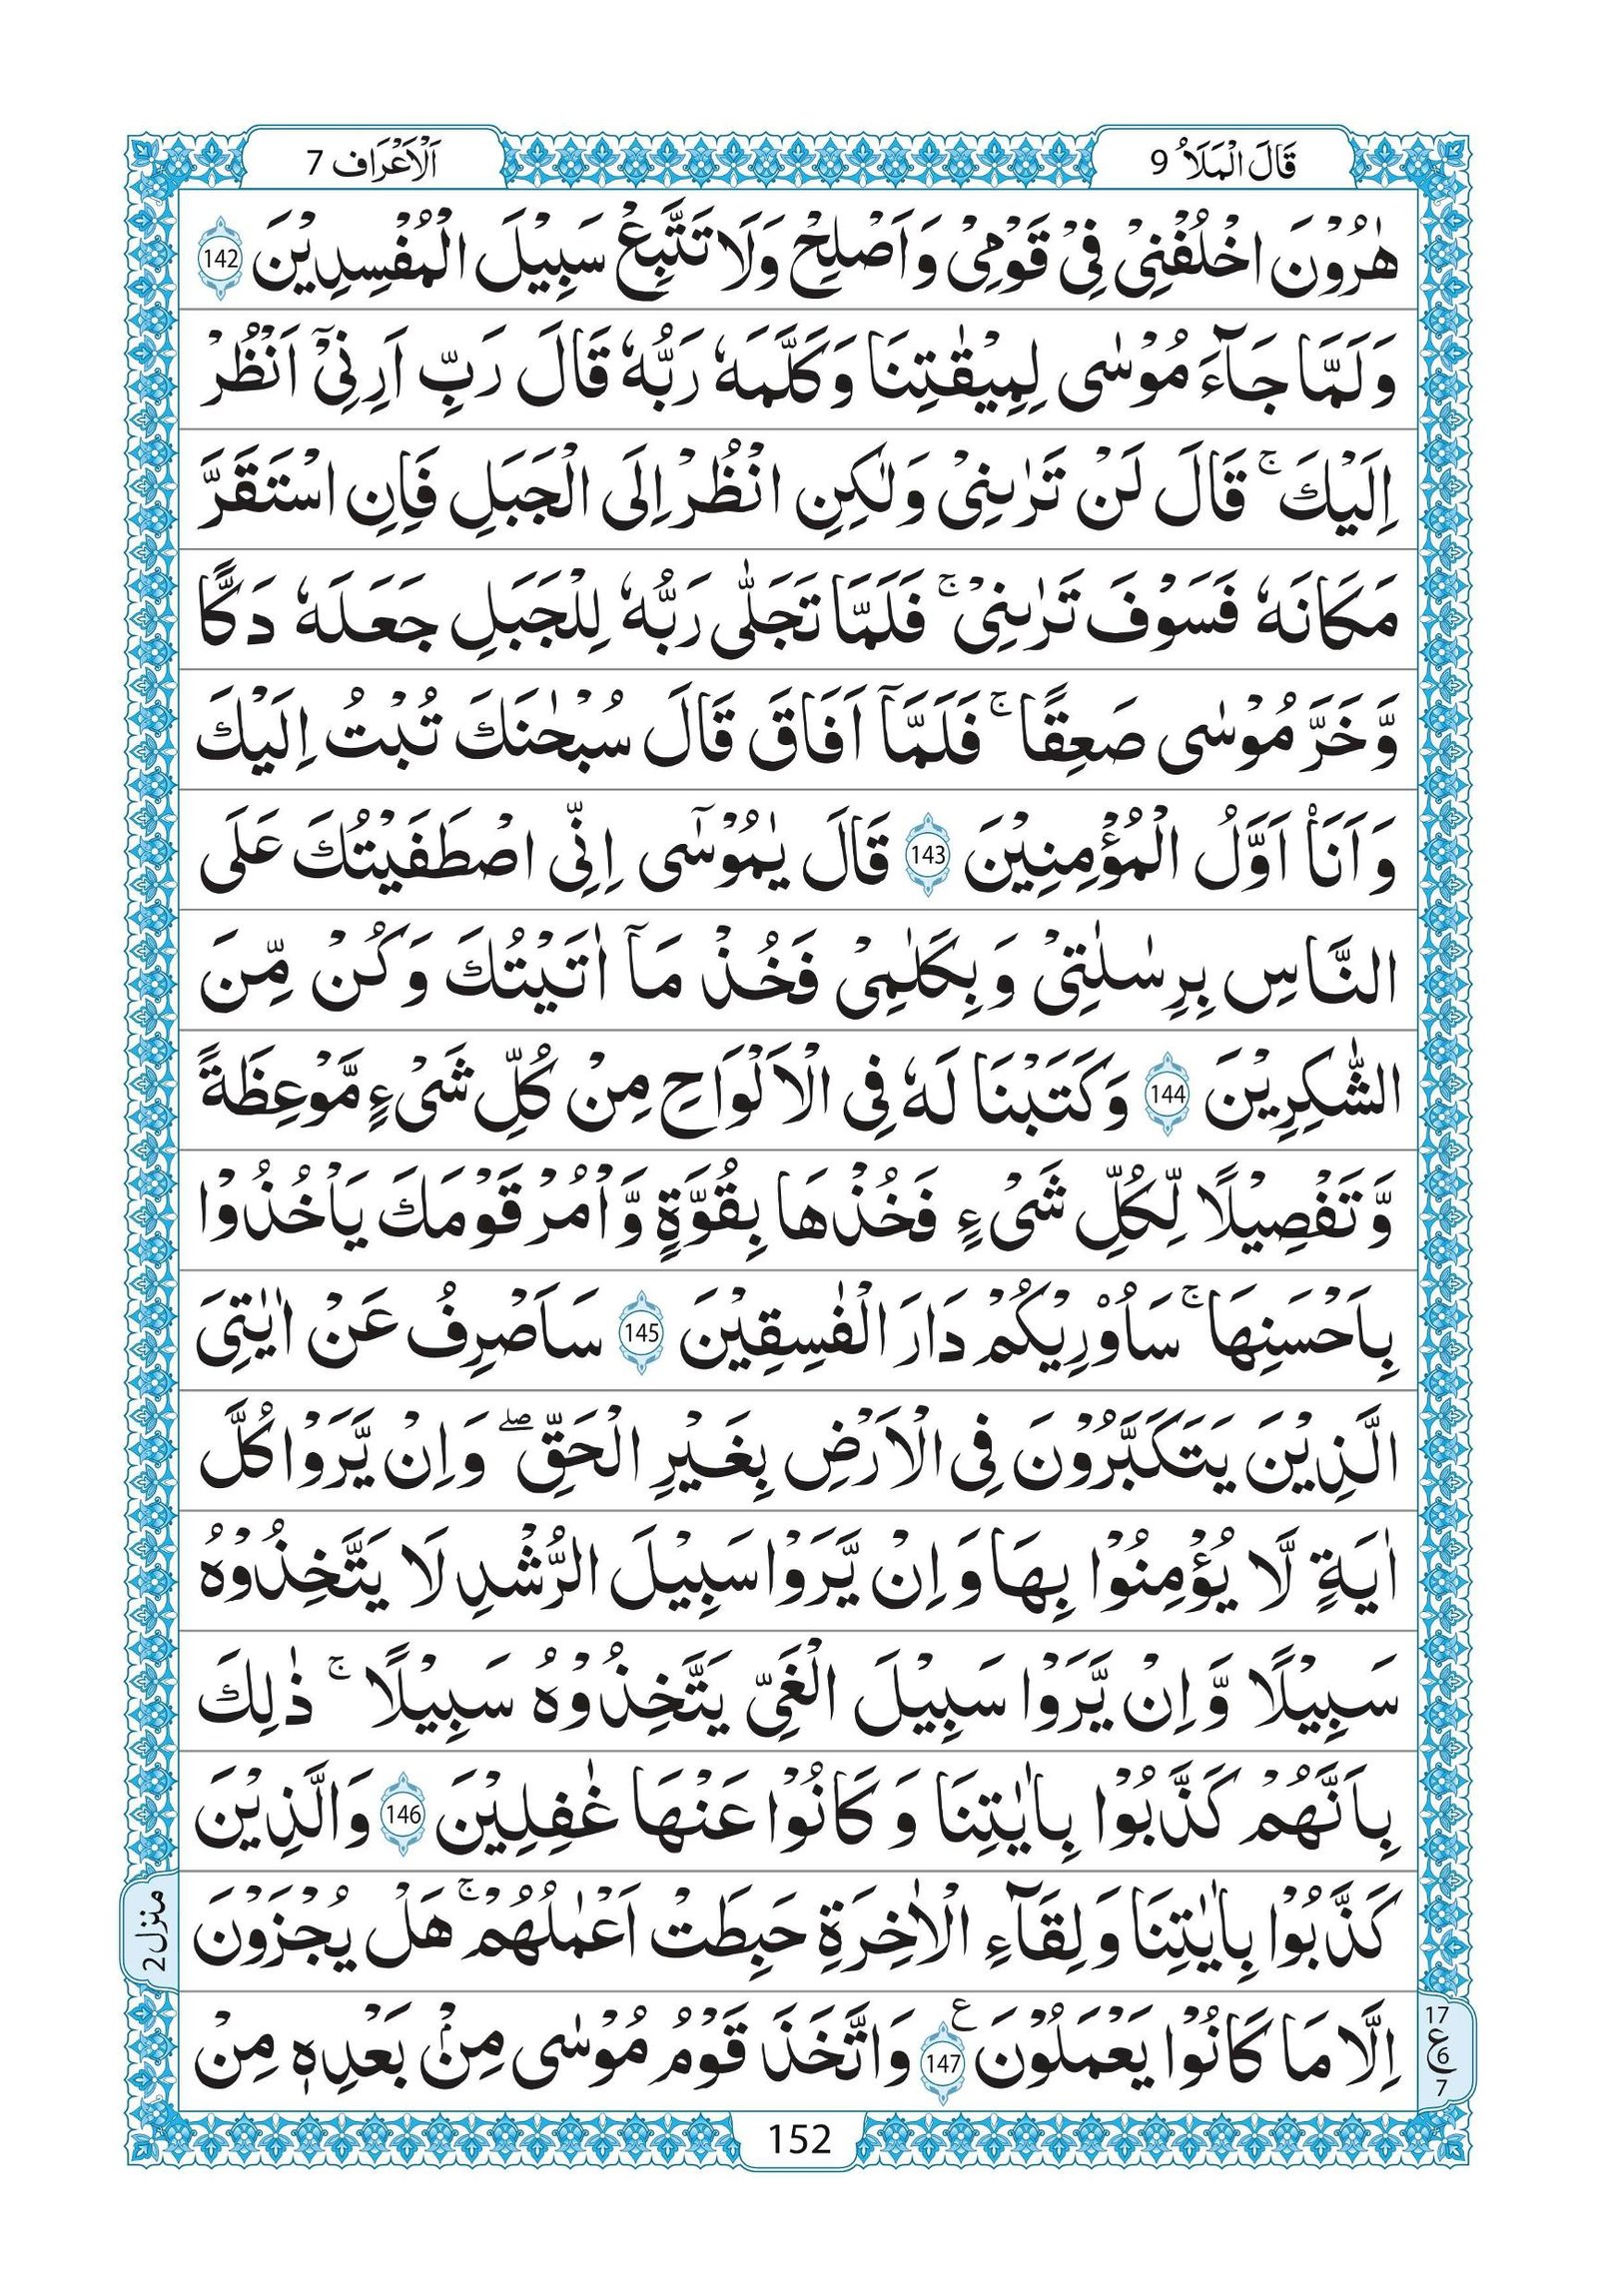 قَالَ الْمَلَاُ 9
اَلْاَعْرَاف 7
هٰرُوْنَ اخْلُفْنِیْ فِیْ قَوْمِیْ وَ اَصْلِحْ وَلَا تَتَّبِعْ سَبِیْلَ الْمُفْسِدِیْنَ 142
وَلَمَّا جَآءَ مُوْسٰی لِمِیْقٰتِنَا وَكَلَّمَهٗ رَبُّهٗ قَالَ رَبِّ اَرِنِیْۤ اَنْظُرْ
اِلَیْكَ ۚ قَالَ لَنْ تَرٰىنِیْ وَلٰكِنِ انْظُرْ اِلَی الْجَبَلِ فَاِنِ اسْتَقَرَّ
مَكَانَهٗ فَسَوْفَ تَرٰىنِیْ ۚ فَلَمَّا تَجَلّٰی رَبُّهٗ لِلْجَبَلِ جَعَلَهٗ دَكًّا
وَّ خَرَّ مُوْسٰی صَعِقًا ۚ فَلَمَّاۤ اَفَاقَ قَالَ سُبْحٰنَكَ تُبْتُ اِلَیْكَ
وَ اَنَا۠ اَوَّلُ الْمُؤْمِنِیْنَ 143 قَالَ یٰمُوْسٰۤی اِنِّی اصْطَفَیْتُكَ عَلَی
النَّاسِ بِرِسٰلٰتِیْ وَ بِكَلٰمِیْ فَخُذْ مَاۤ اٰتَیْتُكَ وَ كُنْ مِّنَ
الشّٰكِرِیْنَ 144 وَكَتَبْنَا لَهٗ فِی الْاَلْوَاحِ مِنْ كُلِّ شَیْءٍ مَّوْعِظَةً
وَّ تَفْصِیْلًا لِّكُلِّ شَیْءٍ فَخُذْهَا بِقُوَّةٍ وَّاْمُرْ قَوْمَكَ یَاْخُذُوْا
بِاَحْسَنِهَا ۚ سَاُورِیْكُمْ دَارَ الْفٰسِقِیْنَ 145 سَاَصْرِفُ عَنْ اٰیٰتِیَ
الَّذِیْنَ یَتَكَبَّرُوْنَ فِی الْاَرْضِ بِغَیْرِ الْحَقِّ ۖ وَاِنْ یَّرَوْا كُلَّ
اٰیَةٍ لَّا یُؤْمِنُوْا بِهَا وَ اِنْ یَّرَوْا سَبِیْلَ الرُّشْدِ لَا یَتَّخِذُوْهُ
سَبِیْلًا وَّ اِنْ یَّرَوْا سَبِیْلَ الْغَیِّ یَتَّخِذُوْهُ سَبِیْلًا ۚ ذٰلِكَ
بِاَنَّهُمْ كَذَّبُوْا بِاٰیٰتِنَا وَ كَانُوْا عَنْهَا غٰفِلِیْنَ 146 وَالَّذِیْنَ
كَذَّبُوْا بِاٰیٰتِنَا وَ لِقَآءِ الْاٰخِرَةِ حَبِطَتْ اَعْمٰلُهُمْ ۚ هَلْ یُجْزَوْنَ
اِلَّا مَا كَانُوْا یَعْمَلُوْنَ ع 147 وَاتَّخَذَ قَوْمُ مُوْسٰی مِنْۢ بَعْدِهٖ مِنْ
منزل 2
17
ع 6
7
152